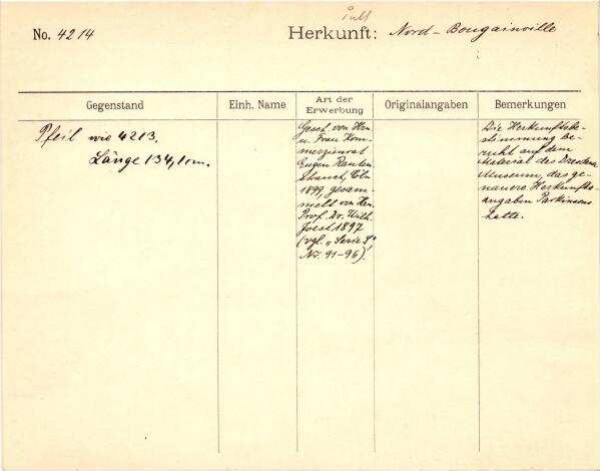 No. 4214
Herkunft: Nord-Bougainville
Gegenstand
Einh. Name
Art der Erwerbung
Originalangaben
Bemerkungen
Pfeil wie 4213.
Länge 134,1 cm.
Gesch. von Hrn
u. Frau Kom-
merzienrat
Eugen Rauten-
strauch, Cöln
1899, gesam-
melt von Hrn.
Prof. Dr. Wilh.
Joest 1897
(vgl. "Serie I",
Nr. 91-96).
Die Herkunftsbe-
stimmung be-
ruht auf dem
Material des Dresdner
Museum, das ge-
nauere Herkunfts-
angaben Parkinsons
hatte.